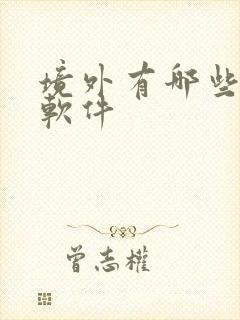 境外有哪些
軟件
曾志權